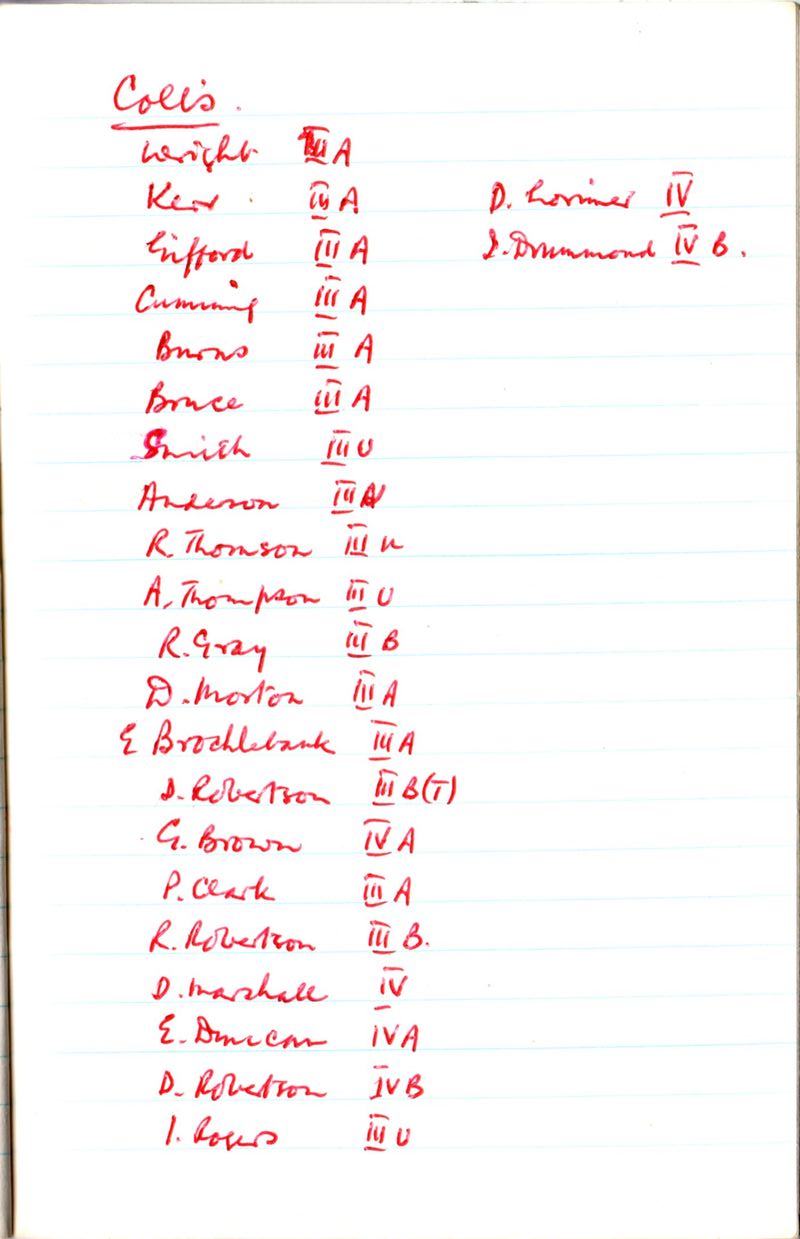 Colls.
Wright III A
Kerr III A
Gifford III A
Cumming III A
Burns III A
Bruce III A
Smith III U
Anderson III
R. Thomson III U
A. Thompson III U
R. Gray III B
D. Morton III A
E Brocklebank III A
D. Robertson III B(T)
G. Brown IV A
P. Clark III A
R. Robertson III B.
D. Marshall IV
E. Duncan IV A
D. Robertson IV B
I. Rogers III U
D. Lorimer IV
Drummond IV B.